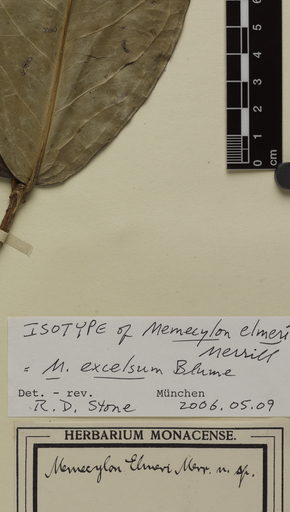 6
5
4
3
2
1
0
cm
ISOTYPE of Memecylon elmeri
Merrill
= M. excelsum Blume
Det. - rev. München
R. D. Stone 2006.05.09
HERBARIUM MONACENSE.
Memecylon Elmeri Merr. n. sp.